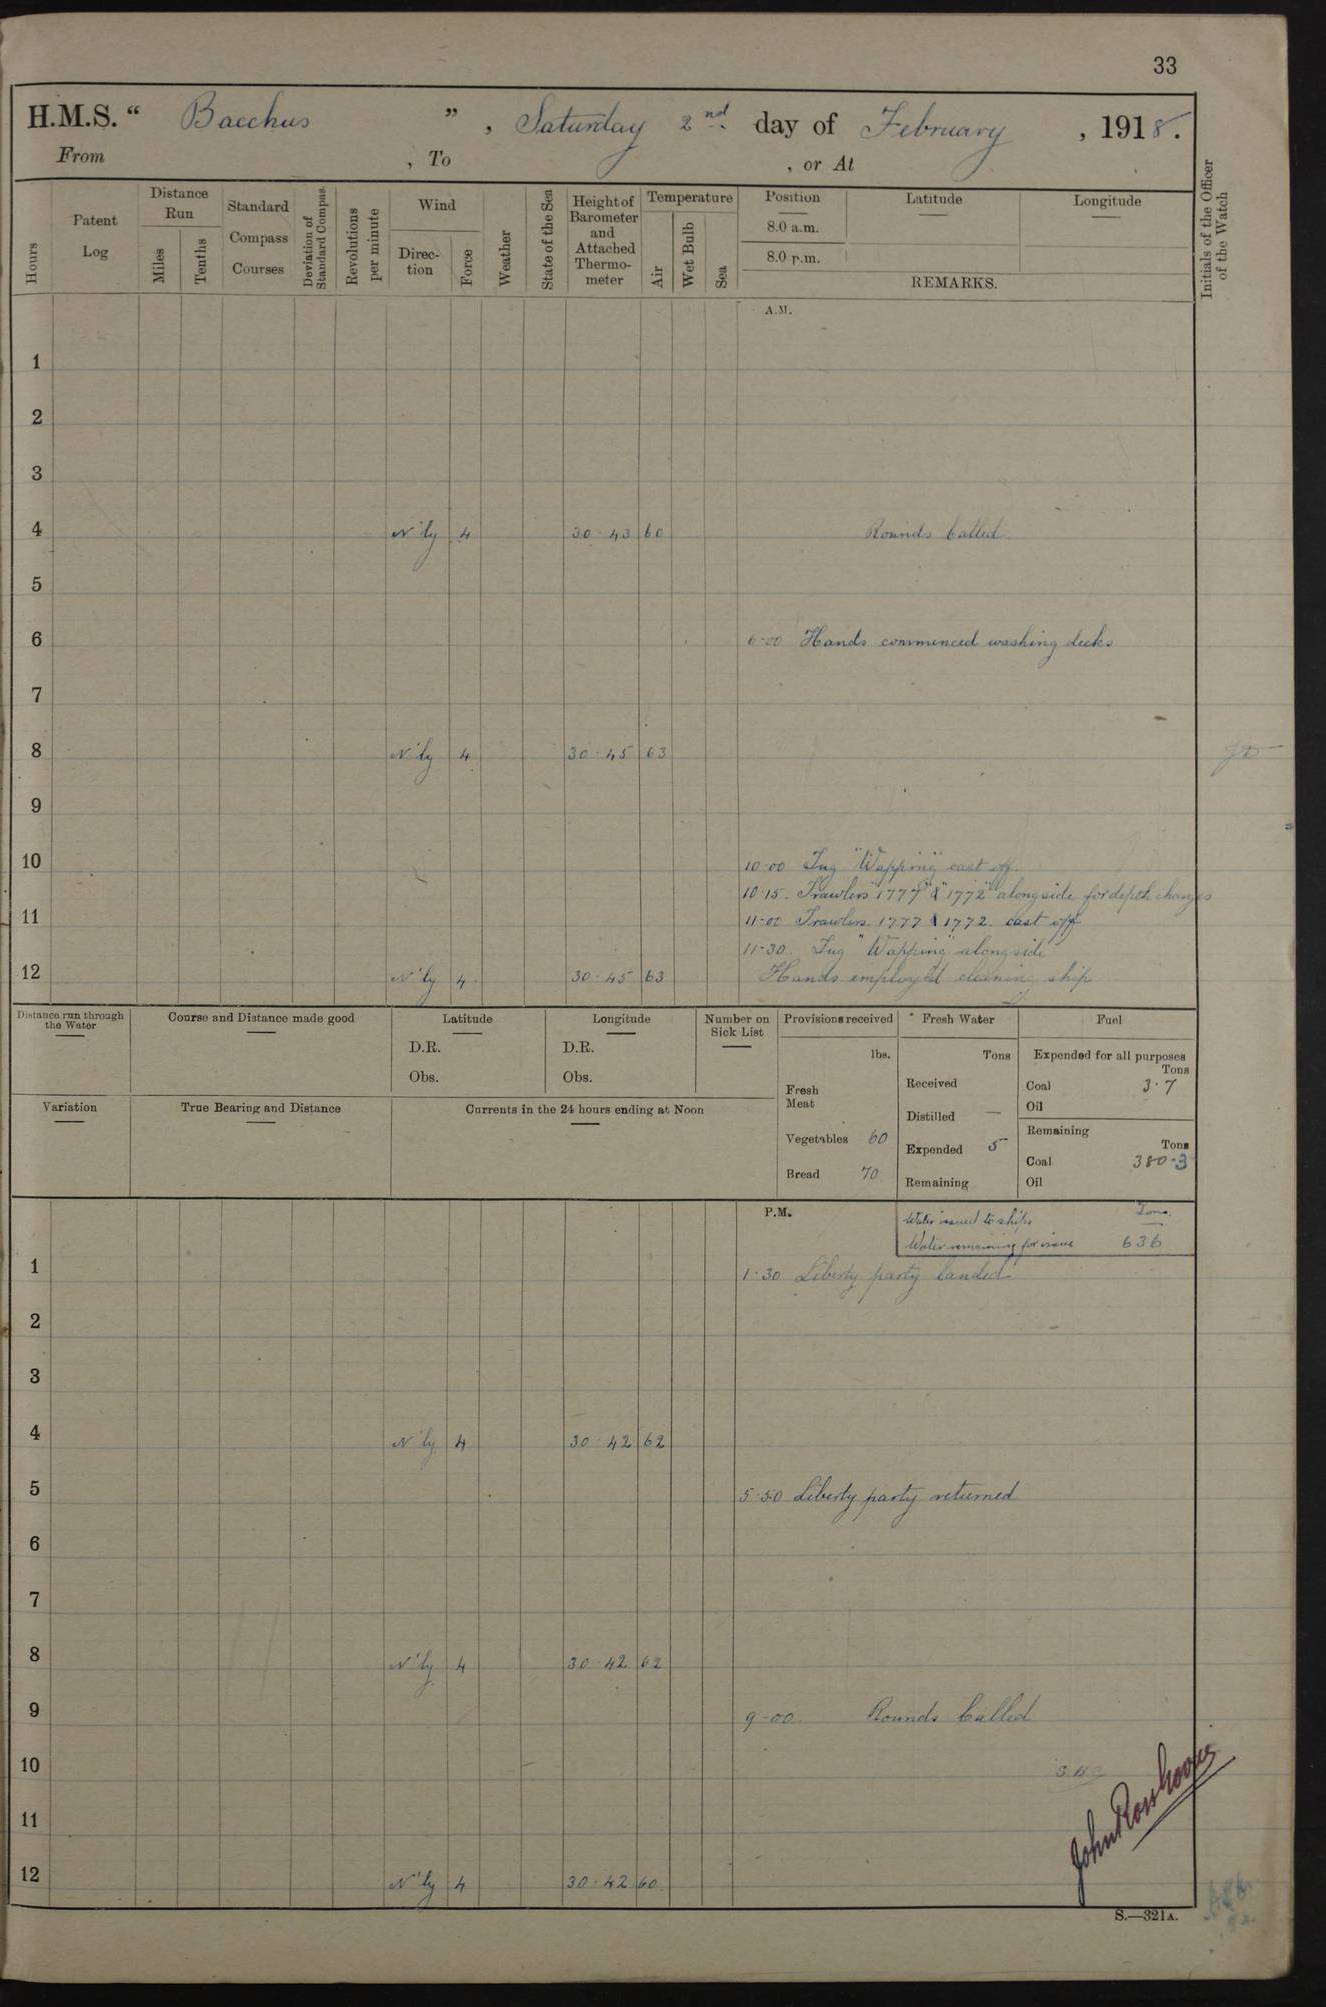 33
H.M.S. “ Bacchus ” , Saturday 2nd day of February , 1918.
From , To , or At
Hours
Patent Log
Distance Run
Miles
Tenths
Standard Compass Courses
Deviation of Standard Compas.
Revolutions per minute
Wind
Direc-tion
Force
Weather
State of the Sea
Height of Barometer and Attached Thermo-meter
Temperature
Air
Wet Bulb
Sea
Position
8.0 a.m.
8.0 p.m.
Latitude
Longitude
REMARKS.
Initials of the Officer of the Watch
A.M.
1
2
3
4 N'ly 4 30·43 60 Rounds Called
5
6 6-00 Hands commenced washing decks
7
8 N'ly 4 30·45 63
9
10 10-00 Tug "Wapping" cast off.
10·15. Trawlers "1777" & "1772" alongside for depth charges
11 11-00 Trawlers. 1777 & 1772. cast off
11-30. Tug "Wapping" alongside
12 N'ly 4 30·45 63 Hands employed cleaning ship
Distance run through the Water
Course and Distance made good
Latitude
D.R.
Obs.
Longitude
D.R.
Obs.
Number on Sick List
Provisions received
lbs.
Fresh Meat
Vegetables 60
Bread 70
Fresh Water
Tons
Received
Distilled —
Expended 5
Remaining
Fuel
Expended for all purposes
Tons
Coal 3·7
Oil
Remaining
Tons
Coal 380·3
Oil
Variation
True Bearing and Distance
Currents in the 24 hours ending at Noon
P.M.
Water issued to ships Tons.
Water remaining for issue 636
1 1-30 Liberty party landed
2
3
4 N'ly 4 30·42 62
5 5-50 Liberty party returned
6
7
8 N'ly 4 30·42 62
9 9-00 Rounds Called
10
11
John Ross
12 N'ly 4 30·42 60
S.—321A.